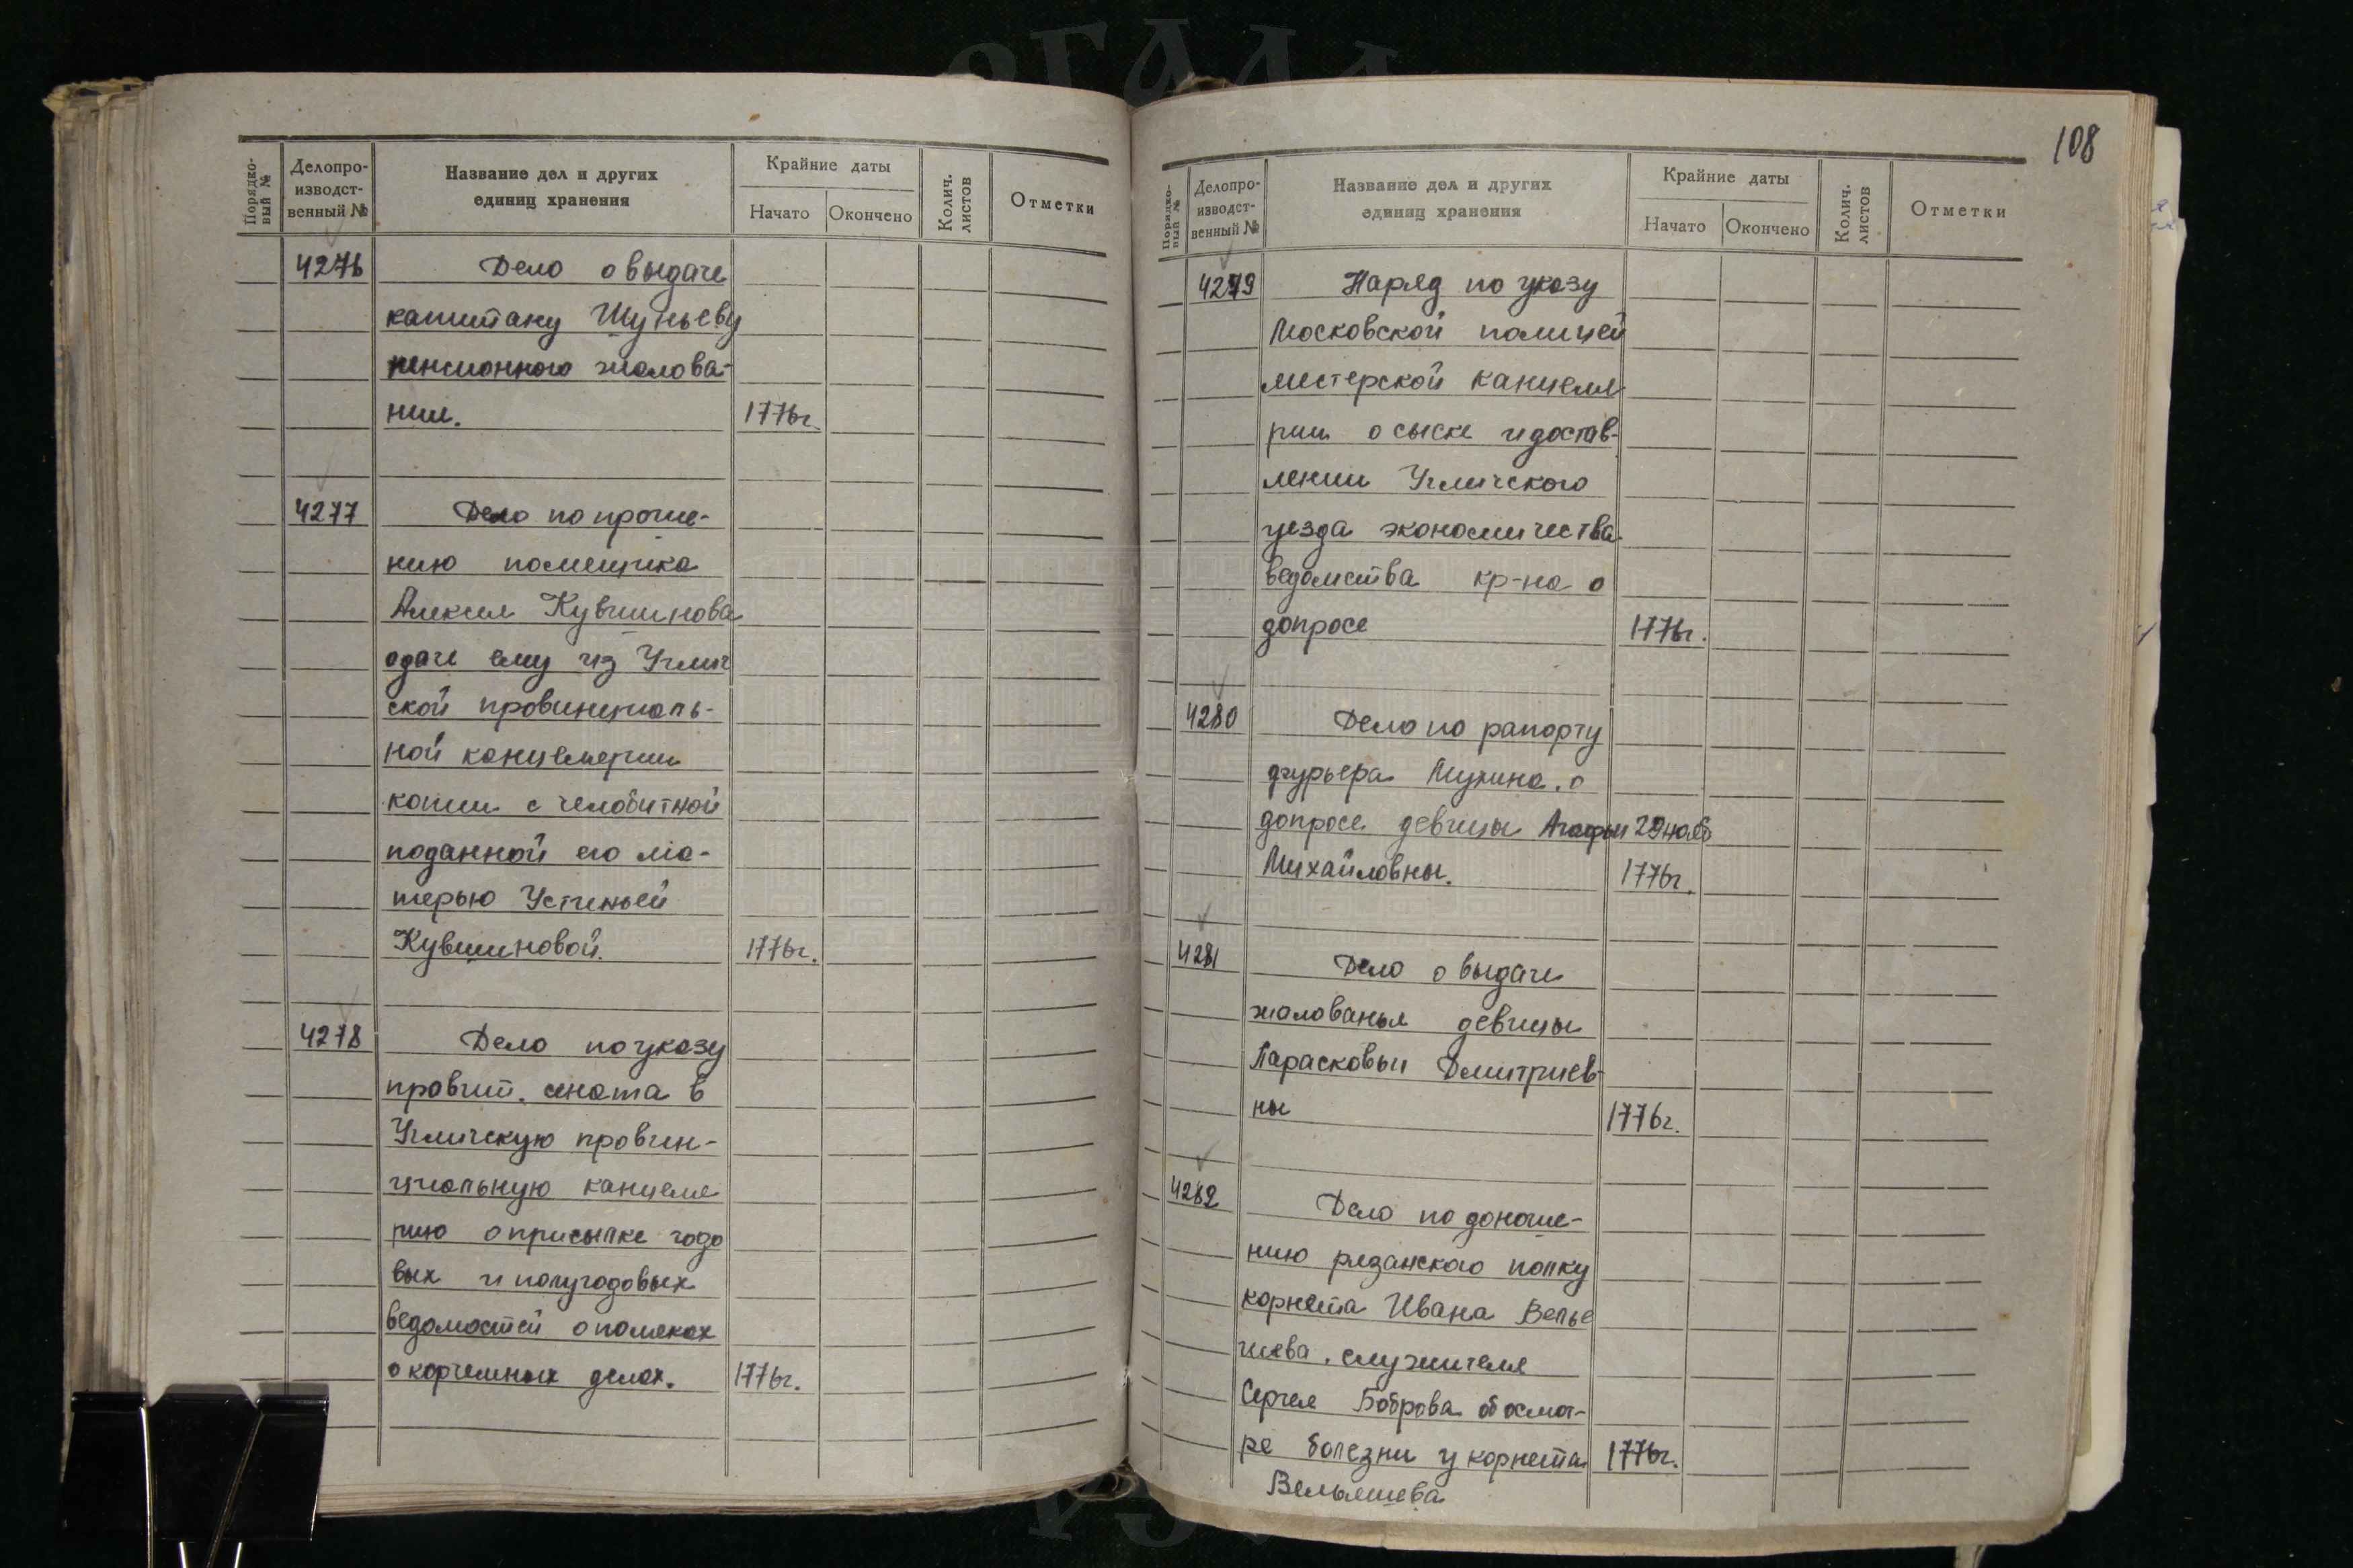 Порядко-
вый №
Делопро-
изводст-
венный №
Название дел и других
единиц хранения
Крайние даты
Начато
Окончено
Колич.
листов
Отметки
4276
Дело о выдаче
капитану Шуньеву
пенсионного жалова-
ния.
1776г.
4277
Дело по проше-
нию помещика
Алексея Кувшинова
о даче ему из Углич
ской провинциаль-
ной канцелярии
копии с челобитной
поданной его ма-
терью Устиньей
Кувшиновой.
1776г.
4278
Дело по указу
правит. сената в
Угличскую провин-
циальную канцеля
рию о присылке годо
вых и полугодовых
ведомостей о поляках
о корчемных делах.
1776г.
108
Порядко-
вый №
Делопро-
изводст-
венный №
Название дел и других
единиц хранения
Крайние даты
Начато
Окончено
Колич.
листов
Отметки
4279
Наряд по указу
Московской полицей
местерской канцеля
рии о сыске и достав-
лении Угличского
уезда экономичества
ведомства кр-на о
допросе
1776г.
4280
Дело по рапорту
фурьера Мухина. о
допросе девицы Агафьи 29 нояб
Михайловны.
1776г.
4281
Дело о выдаче
жалованья девицы
Парасковьи Дмитриев-
ны
1776г.
4282
Дело по доноше-
нию рязанского полку
корнета Ивана Велье
шева. служителя
Сергея Боброва об осмот-
ре болезни у корнета
1776г.
Вельяшева